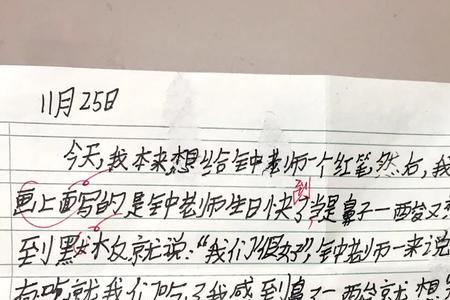 11月25日
今天,我本来想给钟老师一个红笔然后,我
画上面写的是钟老师生日快 到 当是鼻子一酸又
到 就说:"我们很好",钟老师一来说
有吃就我们 了我感到鼻子一酸就想